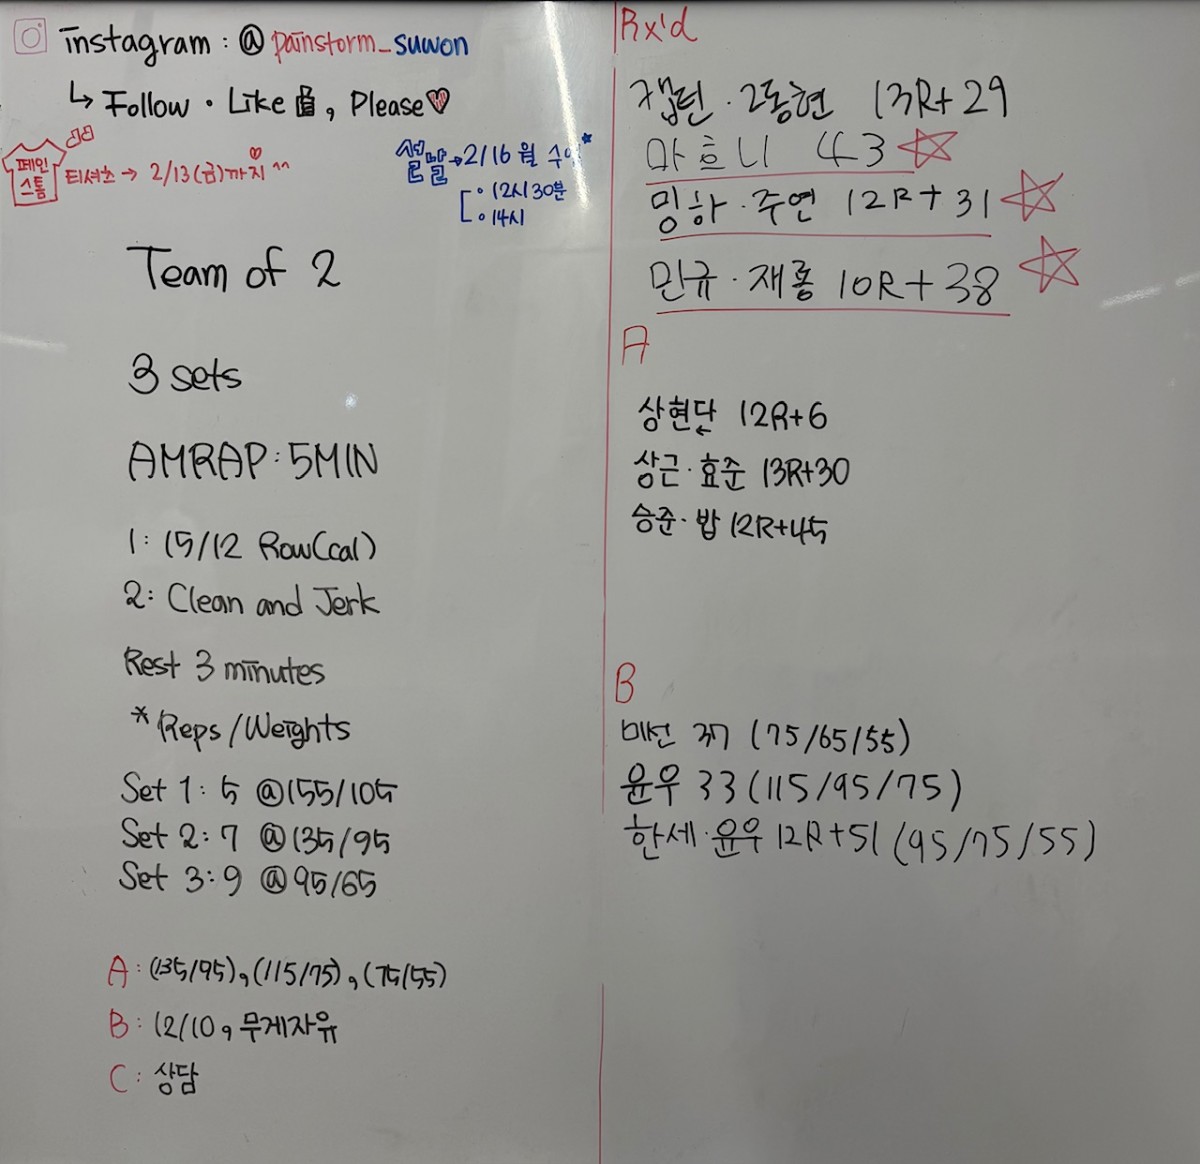 instagram : @ painstorm_suwon
↳ Follow · Like , Please♡
페인
스톰
티셔츠 → 2/13(금)까지 ^^
설날→2/16 월 수
· 12시30분
· 14시
Team of 2
3 sets
AMRAP : 5MIN
1: 15/12 Row(cal)
2: Clean and Jerk
Rest 3 minutes
* Reps/Weights
Set 1: 5 @155/105
Set 2: 7 @135/95
Set 3: 9 @95/65
A: (135/95), (115/75), (75/55)
B: 12/10, 무게자유
C: 상담
Rx'd
캡틴 · 2동현 13R+29
마흐니 43
밍하 · 주연 12R+31
민규 · 재룡 10R+38
A
상현단 12R+6
상근 · 효준 13R+30
승준 · 밥 12R+45
B
미선 37 (75/65/55)
윤우 33 (115/95/75)
한세 · 윤우 12R+51 (95/75/55)